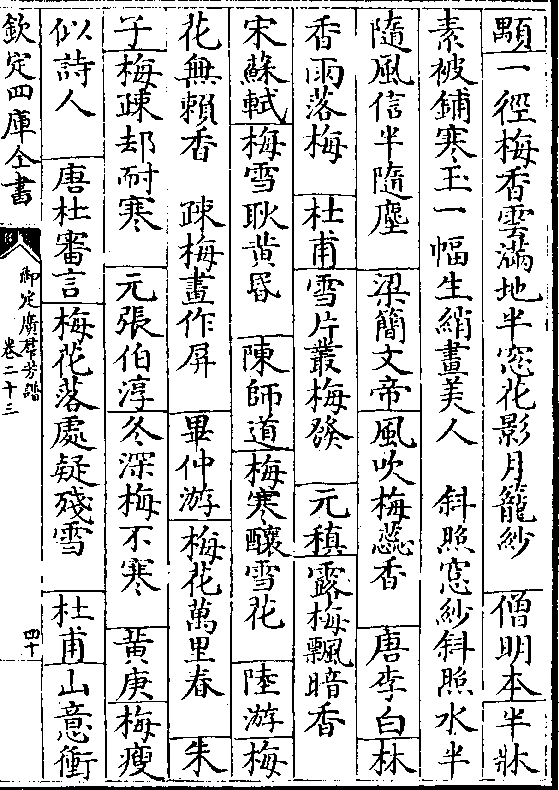 顆一徑梅香雲滿地半窓花影月籠紗　僧明本半牀
素被鋪寒玉一幅生綃畫美人　斜照窓紗斜照水半
隨風信半隨塵　梁簡文帝風吹梅蕊香　唐李白林
香雨落梅　杜甫雪片叢梅發　元稹露梅飄暗香
宋蘇軾梅雪耿黄昏　陳師道梅寒釀雪花　陸游梅
花無賴香　疎梅畫作屏　畢仲游梅花萬里春　朱
子梅疎却耐寒　元張伯淳冬深梅不寒　黄庚梅瘦
似詩人　唐杜審言梅花落處疑殘雪　杜甫山意衝
欽定四庫全書
御定廣羣芳譜
卷二十三
四十